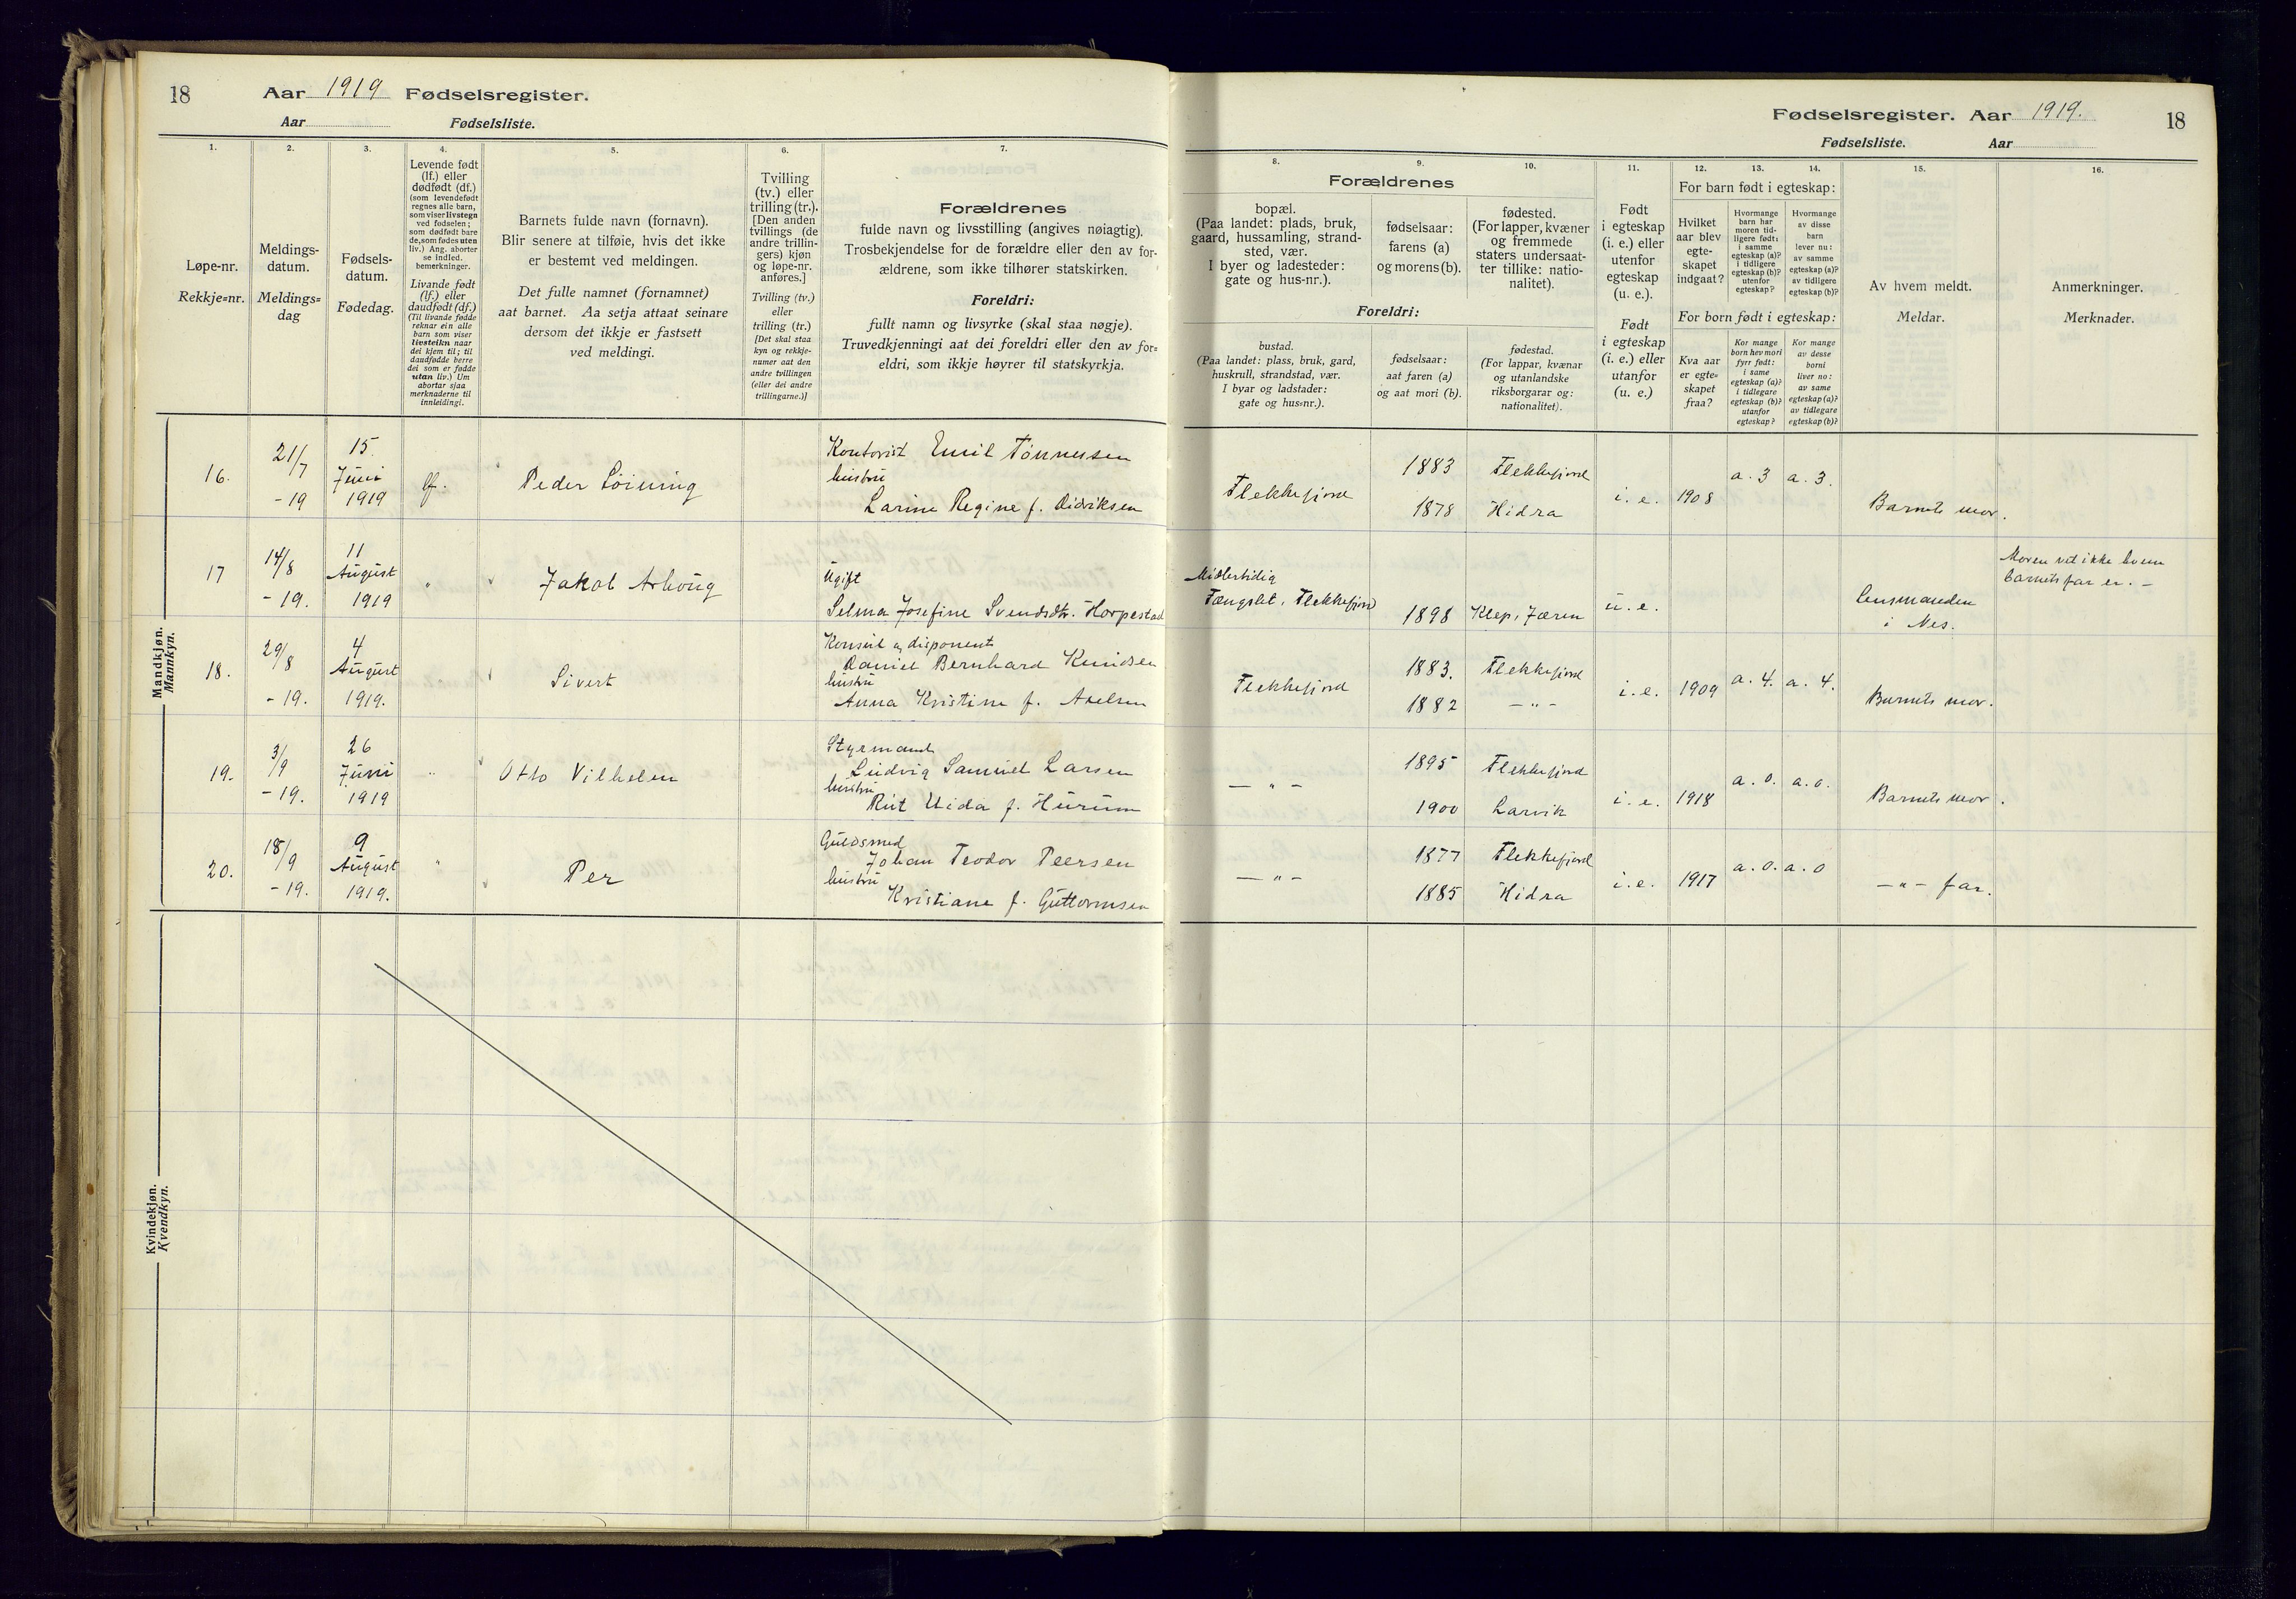 18
Aar 1919 Fødselsregister.
Aar Fødselsliste.
1. 2. 3. 4. 5. 6. 7.
Løpe-nr.
Rekkje=nr.
Meldings-
datum.
Meldings=
dag
Fødsels-
datum.
Fødedag.
Levende født
(lf.) eller
dødfødt (df.)
(som levendefødt
regnes alle barn,
som viser livstegn
ved fødselen;
som dødfødt bare
de, som fødes uten
liv.) Ang. aborter
se indled.
bemerkninger.
Livande født
(lf.) eller
daudfødt (df.)
(Til livande fødde
reknar ein alle
barn som viser
livsteikn naar
dei kjem til; til
daudfødde berre
dei som er fødde
utan liv.) Um
abortar sjaa
merknaderne til
innleidingi.
Barnets fulde navn (fornavn).
Blir senere at tilføie, hvis det ikke
er bestemt ved meldingen.
Det fulle namnet (fornamnet)
aat barnet. Aa setja attaat seinare
dersom det ikkje er fastsett
ved meldingi.
Tvilling
(tv.) eller
trilling (tr.).
[Den anden
tvillings (de
andre trillin-
gers) kjøn
og løpe-nr.
anføres.]
Tvilling (tv.)
eller
trilling (tr.)
[Det skal staa
kyn og rekkje-
numer aat den
andre tvillingen
(eller dei andre
trillingarne.)]
Forældrenes
fulde navn og livsstilling (angives nøiagtig).
Trosbekjendelse for de forældre eller den av for-
ældrene, som ikke tilhører statskirken.
Foreldri:
fullt namn og livsyrke (skal staa nøgje).
Truvedkjenningi aat dei foreldri eller den av for=
eldri, som ikkje høyrer til statskyrkja.
Mandkjøn.
Mannkyn.
16.
21/7
-19
15.
Juni
1919
lf.
Peder Løining
Kontorist Emil Tønnesen
hustru
Larine Regine f. Didriksen
17
14/8
-19.
11
August
1919
"
Jakob Arhoug
Ugift
Selma Josefine Svendsdtr. Horpestad
18.
29/8
-19.
4
August
1919.
Sivert
Konsul og disponent
Daniel Bernhard Knudsen
hustru
Anna Kristine f. Axelsen
19.
3/9
-19.
26
Juni
1919
"
Otto Vilhelm
Styrmand
Ludvig Samuel Larsen
hustru
Rut Uida f. Hurum
20.
18/9
-19.
9
August
1919.
"
Per
Guldsmed
Johan Teodor Peersen
hustru
Kristiane f. Guttormsen
Kvindekjøn.
Kvendkyn.
Fødselsregister. Aar 1919.
18
Fødselsliste. Aar
8. 9. 10. 11. 12. 13. 14. 15. 16.
Forældrenes
bopæl.
(Paa landet: plads, bruk,
gaard, hussamling, strand-
sted, vær.
I byer og ladesteder:
gate og hus-nr.).
fødselsaar:
farens (a)
og morens (b).
fødested.
(For lapper, kvæner
og fremmede
staters undersaat-
ter tillike: natio-
nalitet).
Foreldri:
bustad.
(Paa landet: plass, bruk, gard,
huskrull, strandstad, vær.
I byar og ladstader:
gate og hus=nr.).
fødselsaar:
aat faren (a)
og aat mori (b).
fødestad.
(For lappar, kvænar
og utanlandske
riksborgarar og:
nationalitet).
Født
i egteskap
(i. e.) eller
utenfor
egteskap
(u. e.).
Født
i egteskap
(i. e.) eller
utanfor
(u. e.)
For barn født i egteskap:
Hvilket
aar blev
egte-
skapet
indgaat?
Hvormange
barn har
moren tid-
ligere født:
i samme
egteskap (a)?
i tidligere
egteskap (b)?
utenfor
egteskap?
Hvormange
av disse
barn
lever nu:
av samme
egteskap (a)?
av tidligere
egteskap (b)?
For born født i egteskap:
Kva aar
er egte-
skapet
fraa?
Kor mange
born hev mori
fyrr født:
i same
egteskap (a)?
i tidlegare
egteskap (b)?
utanfor
egteskap?
Kor mange
av desse
borni
liver no:
av same
egteskap (a)?
av tidlegare
egteskap (b)?
Av hvem meldt.
Meldar.
Anmerkninger.
Merknader.
Flekkefjord
1883 Flekkefjord
1878 Hidra
i. e. 1908
a. 3 a. 3.
Barnets mor.
Midlertidig
Fængslet, Flekkefjord
1898 Klep, Jæren
u. e.
lensmanden
i Nes.
Moren vet ikke hvem
barnets far er. -
Flekkefjord
1883. Flekkefjord
1882 - " -
i. e. 1909
a. 4. a. 4.
Barnets mor.
- " -
1895 Flekkefjord
1900 Larvik
i. e. 1918
a. 0. a. 0.
Barnets mor.
- " -
1877 Flekkefjord
1885 Hidra
i. e. 1917
a. 0. a. 0
- " - far.